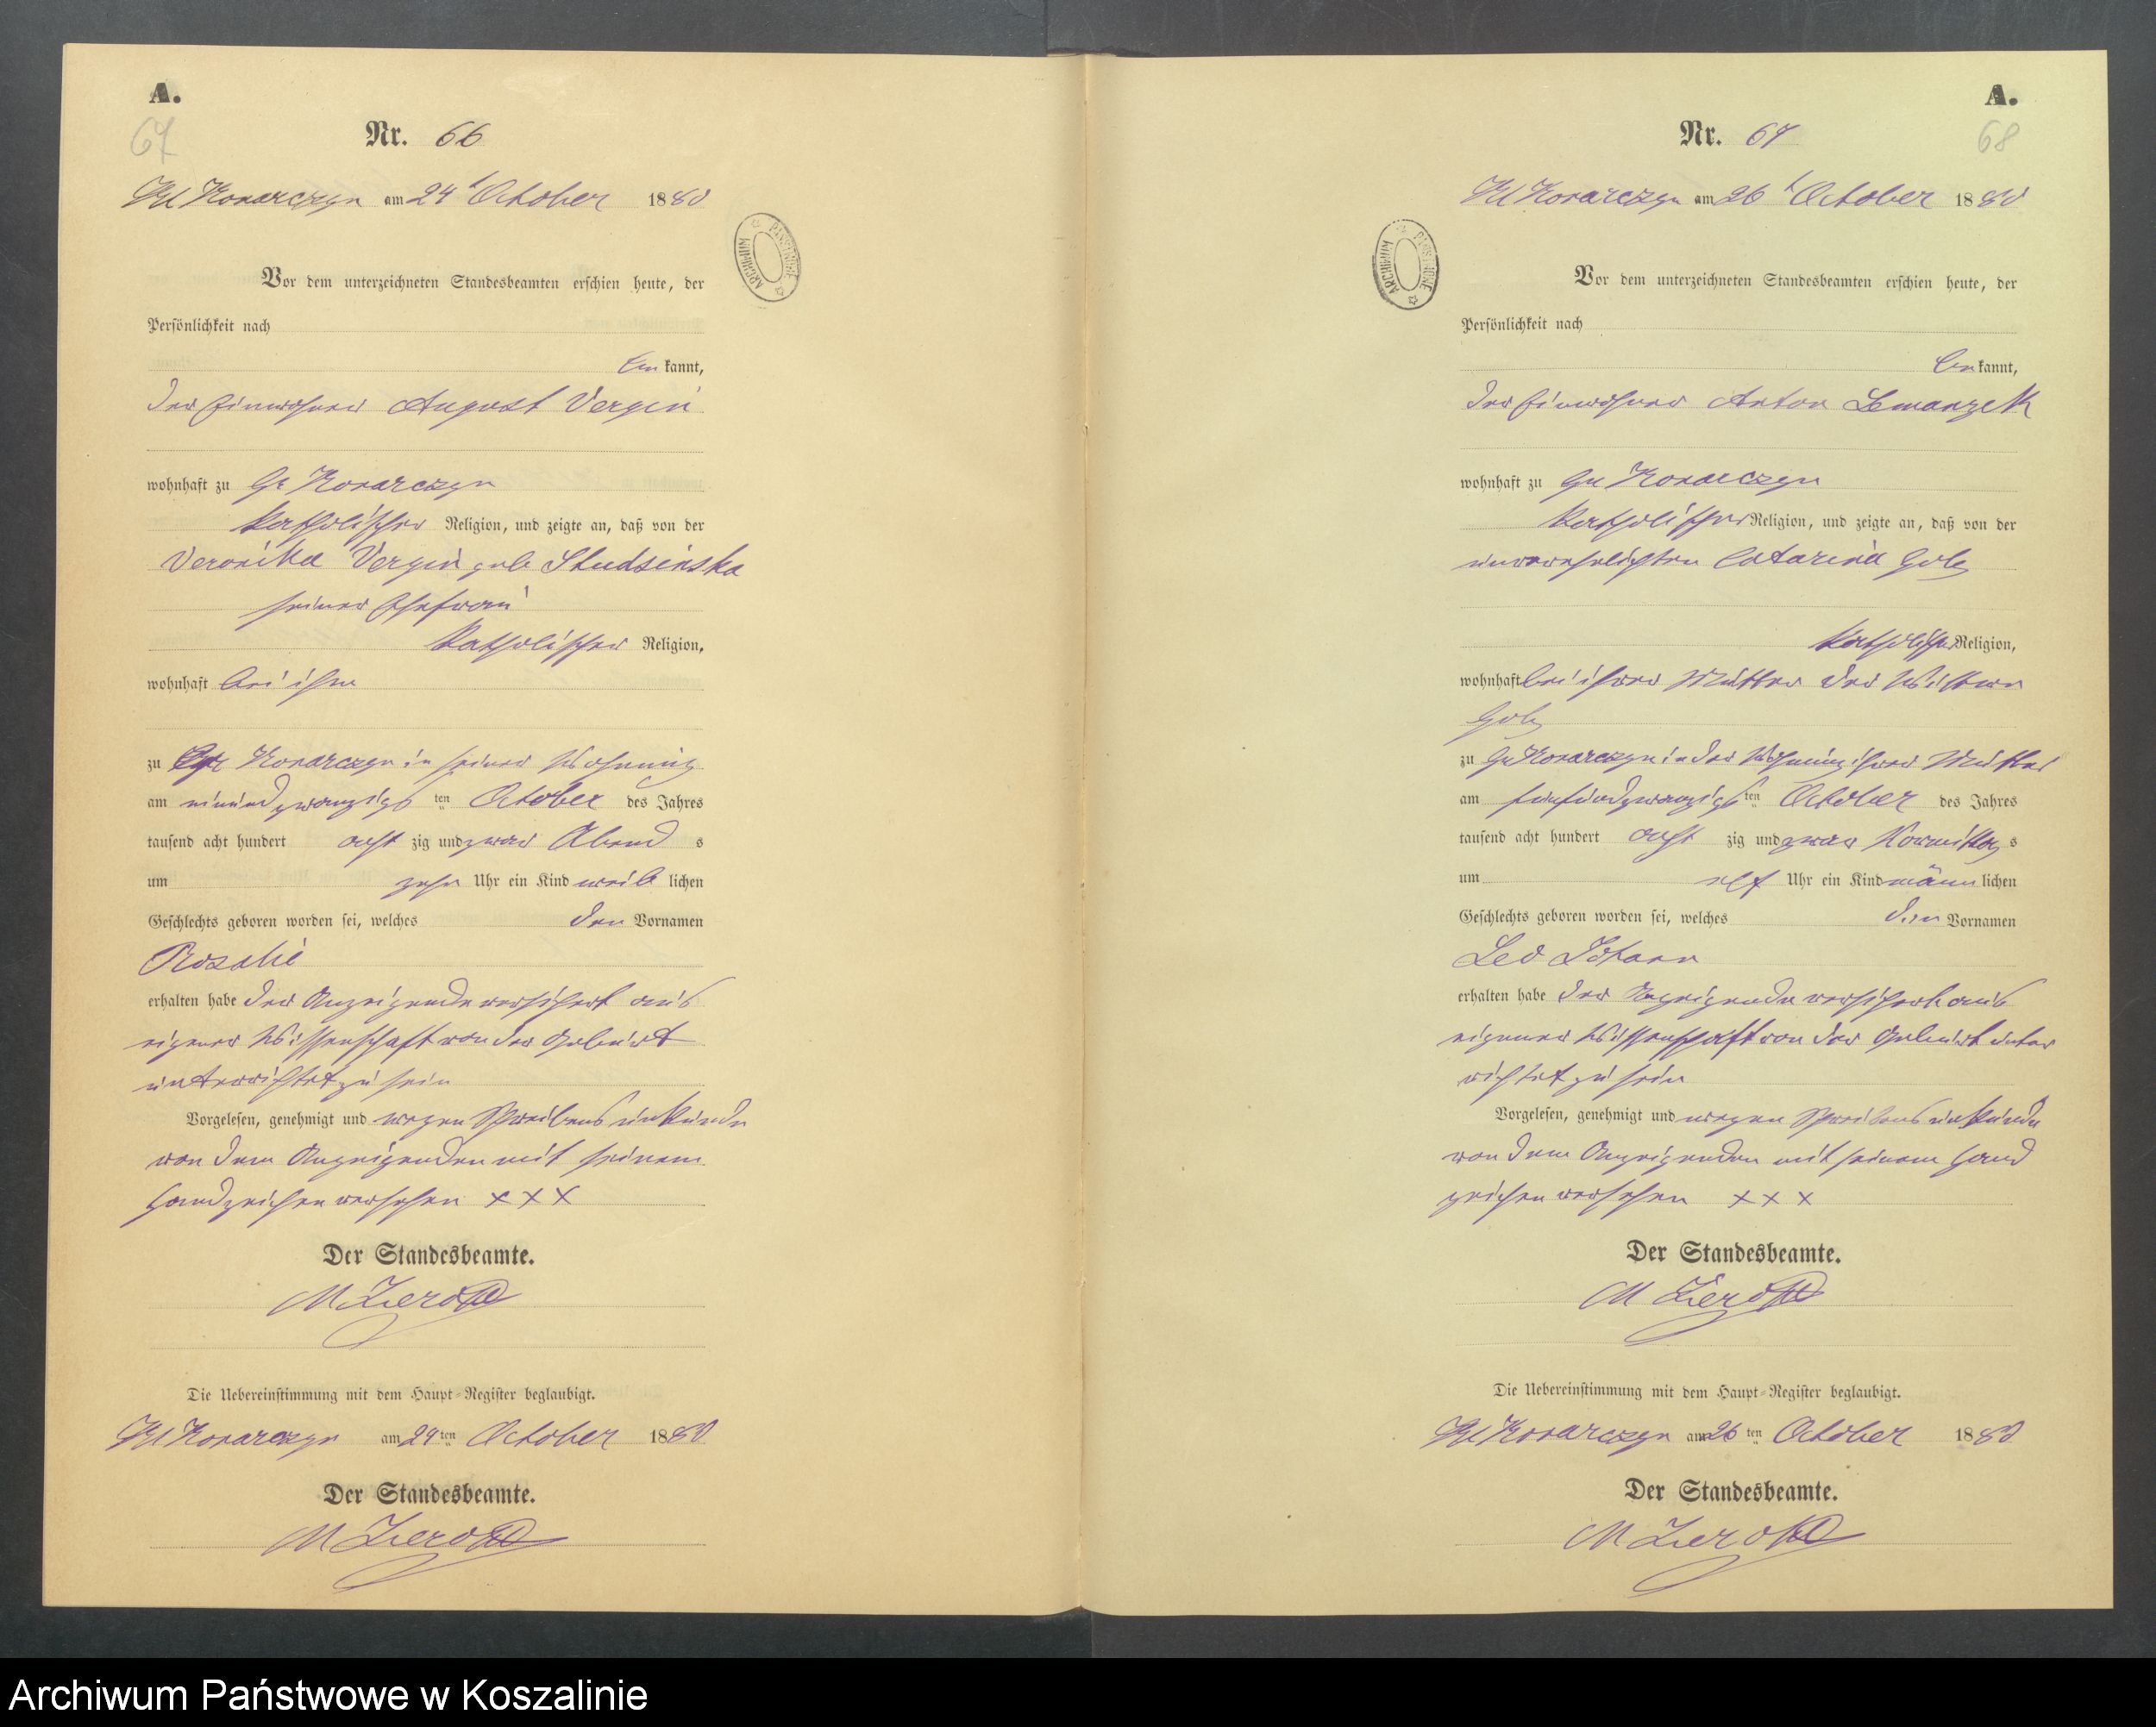 A.
67
Nr. 66
Kl Konarczyn am 24t October 1880
Vor dem unterzeichneten Standesbeamten erschien heute, der
Persönlichkeit nach
be kannt,
der Einwohner August Vergin
wohnhaft zu Gr Konarczyn
katholischer Religion, und zeigte an, daß von der
Veronika Vergin geb Studsinska
seiner Ehefrau
katholischer Religion,
wohnhaft bei ihm
zu Gr Konarczyn in seiner Wohnung
am einundzwanzigs ten October des Jahres
tausend acht hundert acht zig und zwar Abend s
um zehn Uhr ein Kind weib lichen
Geschlechts geboren worden sei, welches den Vornamen
Rosalie
erhalten habe der Anzeigende versichert aus
eigener Wissenschaft von der Geburt
unterrichtet zu sein
Vorgelesen, genehmigt und wegen Schreibensunkunde
von dem Anzeigenden mit seinem
Handzeichen versehen x x x
Der Standesbeamte.
Die Uebereinstimmung mit dem Haupt-Register beglaubigt.
Kl Konarczyn am 24 ten October 1880
Der Standesbeamte.
ARCHIWUM PAŃSTWOWE
A.
68
Nr. 67
Kl Konarczyn am 26t October 1880
Vor dem unterzeichneten Standesbeamten erschien heute, der
Persönlichkeit nach
be kannt,
der Einwohner Anton Lemanzek
wohnhaft zu Gr Konarczyn
katholischer Religion, und zeigte an, daß von der
unverehelichten Catarina
katholischer Religion,
wohnhaft bei ihrer Mutter der Wittwe
zu Gr Konarczyn in der Wohnung ihrer Mutter
am fünfundzwanzigs ten October des Jahres
tausend acht hundert acht zig und zwar Vormittag s
um elf Uhr ein Kind männ lichen
Geschlechts geboren worden sei, welches den Vornamen
Leo Johann
erhalten habe der Anzeigende versichert aus
eigener Wissenschaft von der Geburt unter
richtet zu sein
Vorgelesen, genehmigt und wegen Schreibensunkunde
von dem Anzeigenden mit seinem Hand
zeichen versehen x x x
Der Standesbeamte.
Die Uebereinstimmung mit dem Haupt-Register beglaubigt.
Kl Konarczyn am 26 ten October 1880
Der Standesbeamte.
ARCHIWUM PAŃSTWOWE
Archiwum Państwowe w Koszalinie